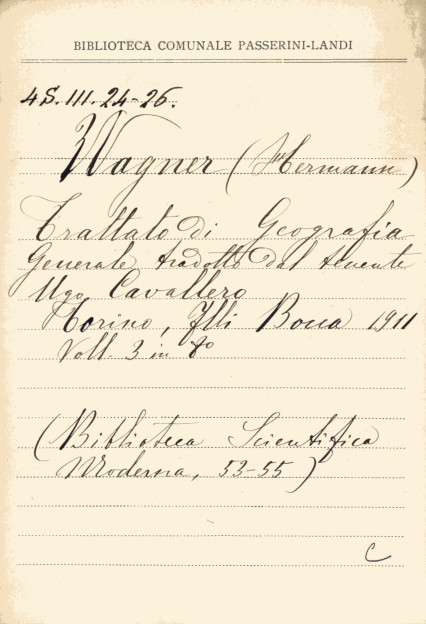 BIBLIOTECA COMUNALE PASSERINI-LANDI
4S. III. 24-26.
Wagner (Hermann)
Trattato di Geografia
Generale tradotto dal tenente
Ugo Cavallero
Torino, Flli Bocca 1911
Voll. 3 in 8º
(Biblioteca Scientifica
Moderna, 53-55)
C